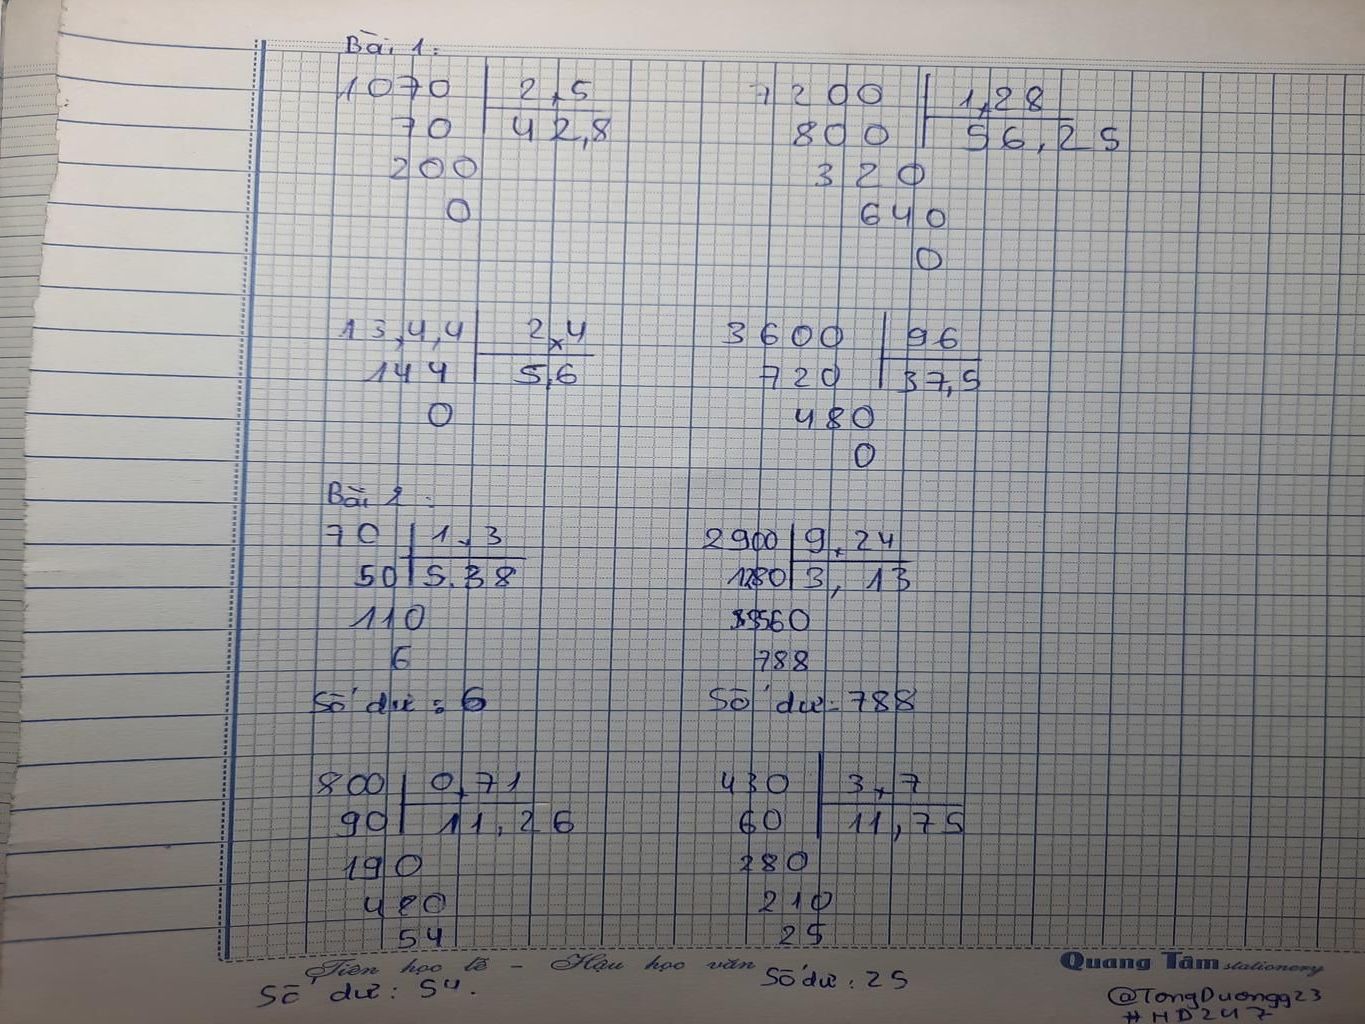 Bài 1:
1070 2,5
70 42,8
200
0
7200 1,28
800 56,25
320
640
0
13,4,4 2,4
144 5,6
0
3600 96
720 37,5
480
0
Bài 2:
70 1,3
50 5,38
110
6
Số dư: 6
2900 9,24
1280 3,13
3560
788
Số dư: 788
800 0,71
90 11,26
190
480
54
Số dư: 54.
430 3,7
60 11,75
280
210
25
Số dư: 25
Tiên học lễ - Hậu học văn
Quang Tâm stationery
@TongDuongg23
#HD247